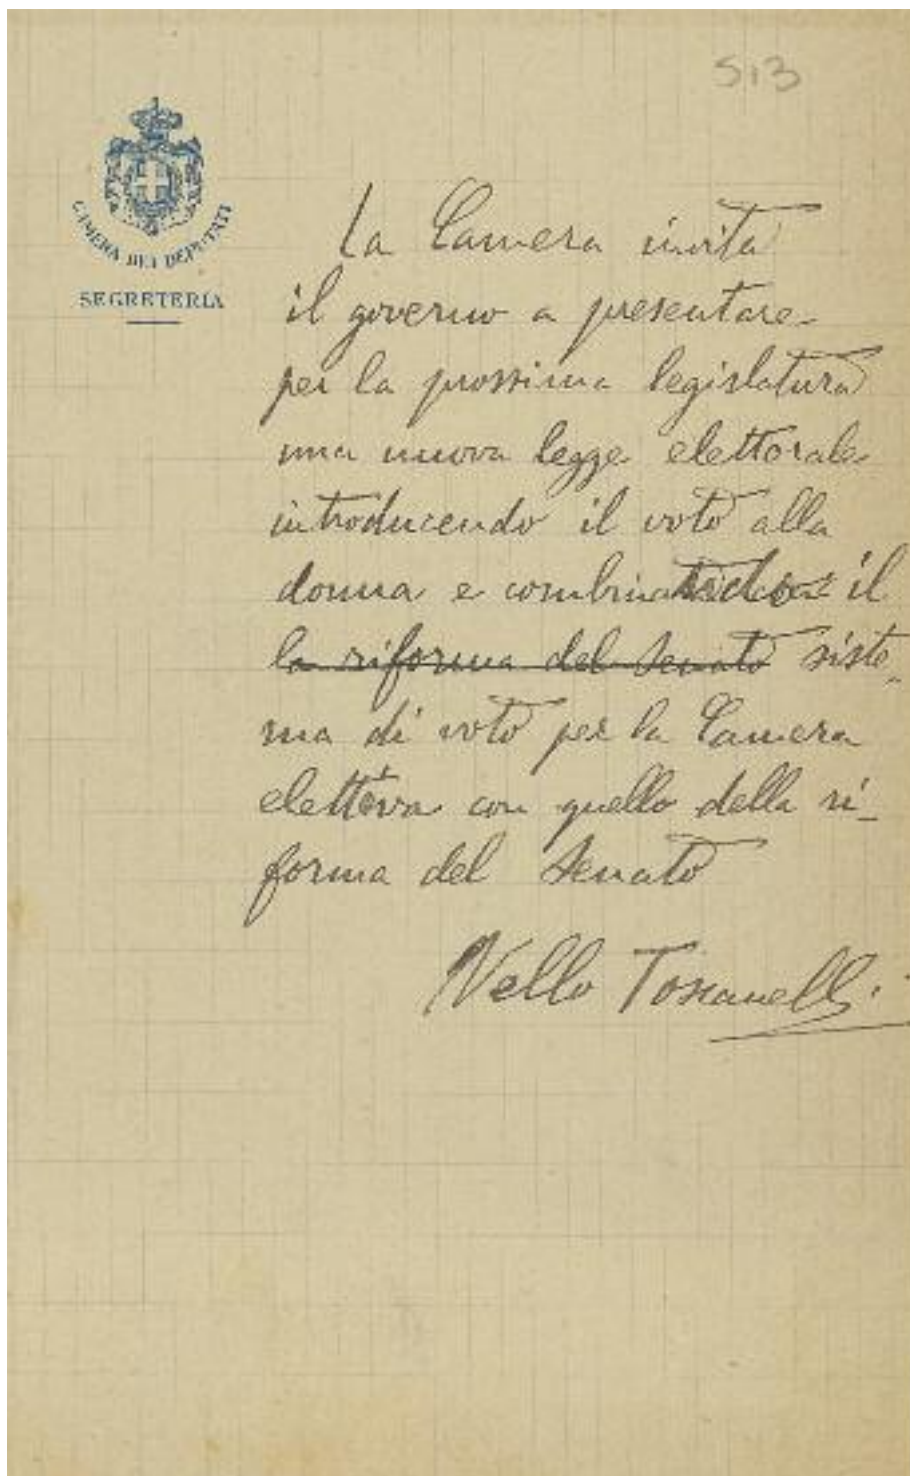 513
CAMERA DEI DEPUTATI
SEGRETERIA
La Camera invita
il governo a presentare
per la prossima legislatura
una nuova legge elettorale
introducendo il voto alla
donna e combinando il
la riforma del Senato siste-
ma di voto per la Camera
elettiva con quello della ri-
forma del Senato
Nello Toscanelli